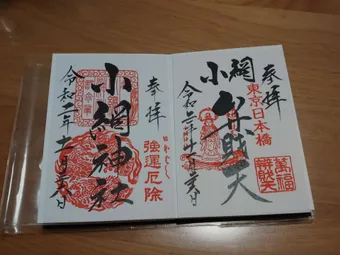 奉拝
東京日本橋
小網弁財天
令和二年十一月
萬福
奉拝
強運厄除
小網神社
令和二年十一月